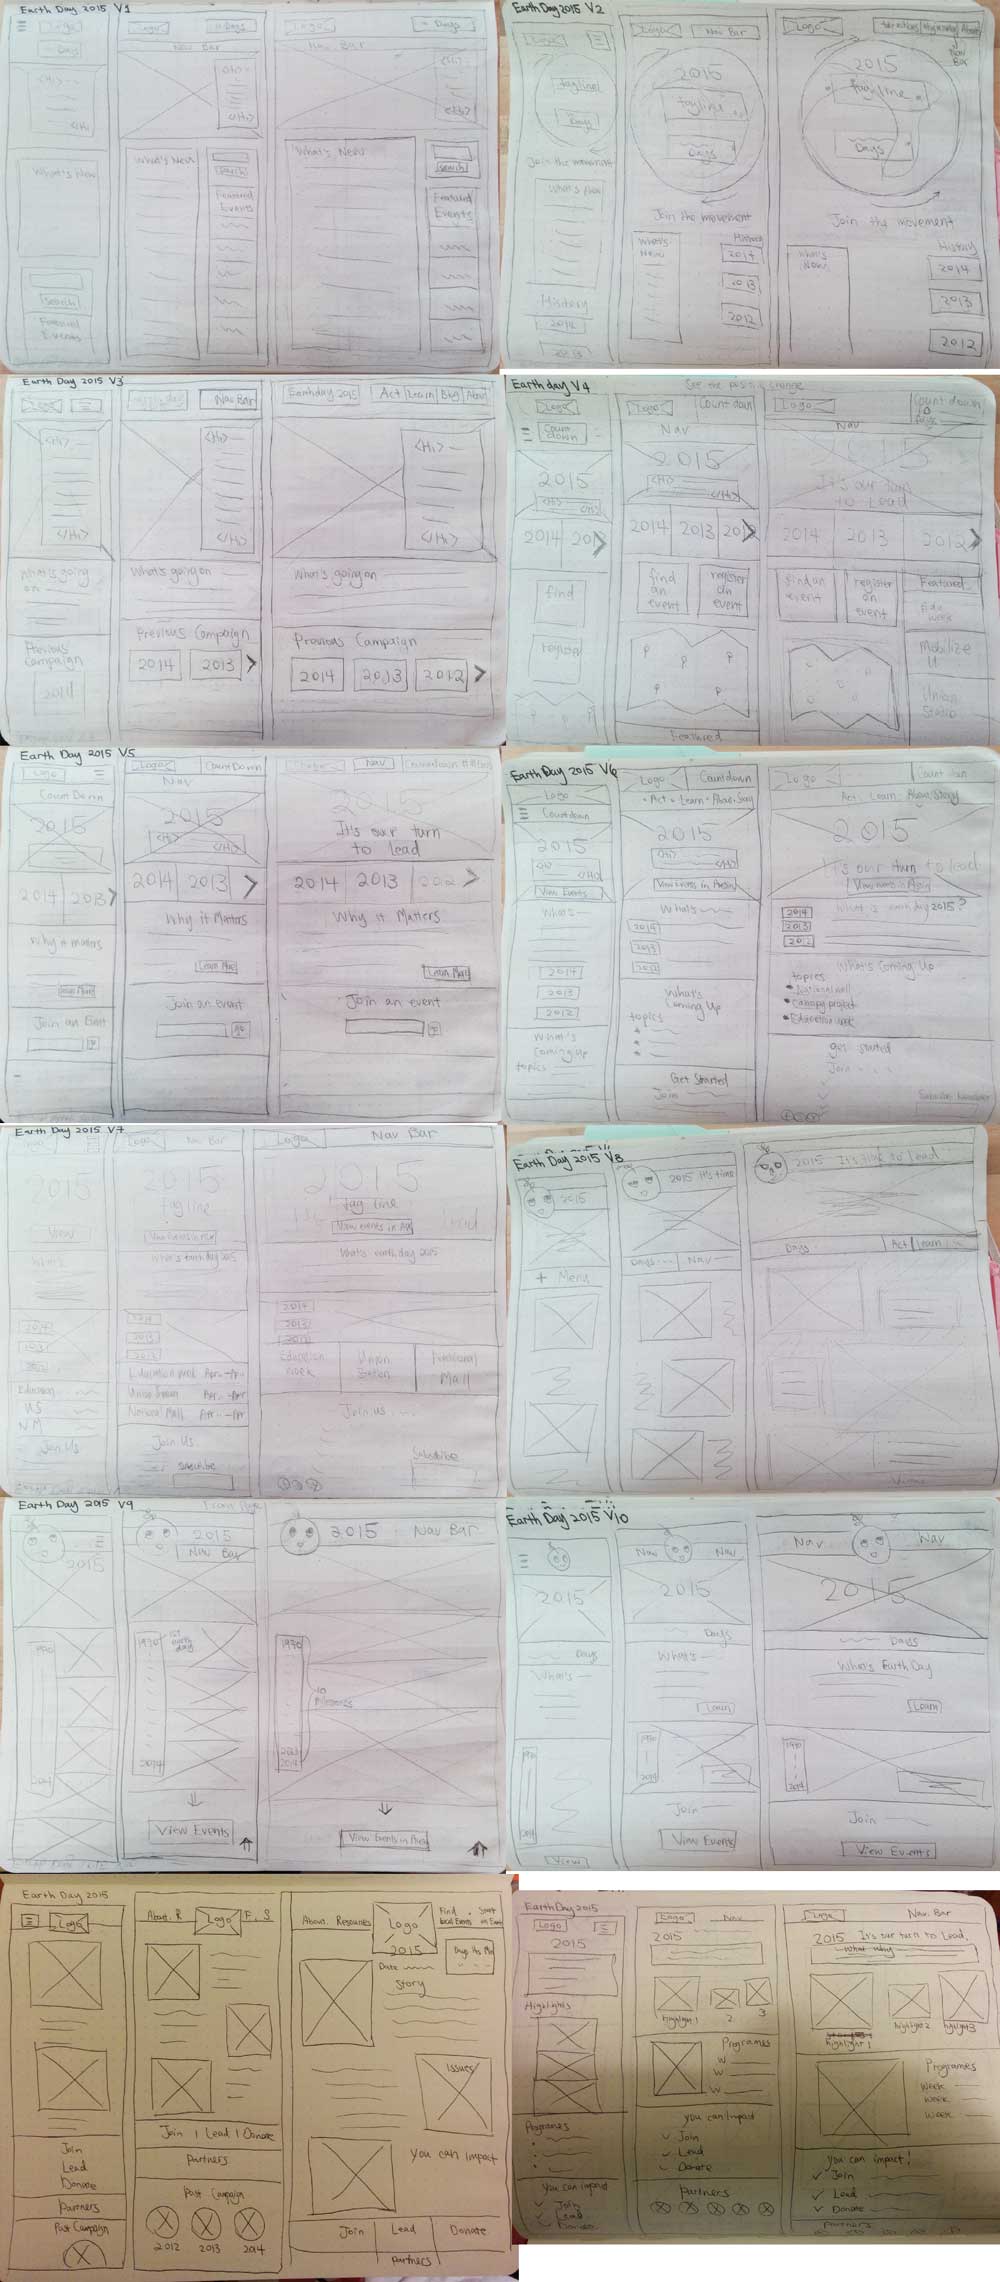 Earth Day 2015 V1
Logo
Days
<Hi>
</Hi>
What's New
search
Featured
Events
Logo
Days
Nav Bar
<Hi>
</Hi>
What's New
search
Featured
Events
Logo
Days
Nav Bar
<Hi>
</Hi>
What's New
search
Featured
Events
Earth Day 2015 V2
Logo
tagline
Days
Join the movement
What's New
History
2014
2013
Logo
Nav Bar
2015
tagline
Days
Join the movement
What's
New
History
2014
2013
2012
Logo
About
Nav
Bar
2015
tagline
Days
Join the movement
What's
New
History
2014
2013
2012
Earth Day 2015 V3
Logo
<Hi>
</Hi>
What's going
on
Previous
Campaign
2014
Nav Bar
<Hi>
</Hi>
What's going on
Previous Campaign
2014
2013
Earthday 2015
Act
Learn
Blog
About
<Hi>
</Hi>
What's going on
Previous Campaign
2014
2013
2012
Earth day V4
See the past change
Logo
Count
down
2015
<Hi>
</Hi>
2014
201
find
register
Logo
Count down
Nav
2015
<Hi>
</Hi>
2014
2013
2012
find
an
event
register
an
event
Featured
Logo
Count down
Days
Nav
2015
It's our turn
to Lead
2014
2013
2012
find an
event
register
an
event
Featured
Mobilize
U
Union
Station
Earth Day 2015 V5
Logo
Count Down
2015
2014
2013
Why it matters
Learn More
Join an Event
Logo
Count Down
Nav
2015
<Hi>
</Hi>
2014
2013
Why it Matters
Learn More
Join an event
Nav
2015
It's our turn
to lead
2014
2013
202
Why it Matters
Learn More
Join an event
Earth Day 2015 V6
Logo
Countdown
2015
View Events
What's
2014
2013
2012
What's
Coming up
topics
Logo
Countdown
Act Learn About Story
2015
<Hi>
</Hi>
View Events in Region
What's
2014
2013
2012
What's
Coming Up
topics
Get Started
Join
Logo
Count down
Act Learn About Story
2015
It's our turn to lead
View events in Region
2014
2013
2012
What is earth day 2015?
What's Coming Up
topics
National mall
Canopy project
Education week
get started
Join
Subscribe Newsletter
Earth Day 2015 V7
2015
View
What's
2014
2013
2012
Education
US
N M
Join Us
Logo
Nav Bar
2015
tag line
What's earth day 2015
2014
2013
2012
Education week Apr - Apr
Union Station Apr - Apr
National Mall Apr - Apr
Join Us
Subscribe
Logo
Nav Bar
2015
tag line
View events in Area
What's earth day 2015
2014
2013
2012
Education
week
Union
Station
National
Mall
Join us
Subscribe
Earth Day 2015 V8
2015
+ Menu
2015 It's time
Days
Nav
2015 It's time to Lead
Days
Act
Learn
Earth Day 2015 V9
2015
1970
2014
2015
Nav Bar
1970
1st
earth
day
2014
View Events
2015
Nav Bar
1970
10
Milestones
2013
2014
View Events in Area
Earth Day 2015 V10
2015
Days
What's
1970
2014
View
Nav
Nav
2015
Days
What's
Learn
1970
2014
Join
View Events
Nav
Nav
2015
Days
What's Earth Day
Learn
1970
2014
Join
View Events
Earth Day 2015
Logo
Join
Lead
Donate
Partners
Past Campaign
About. R
Logo
F. S
Join | Lead | Donate
Partners
Past Campaign
2012
2013
2014
About. Resources
Logo
2015
Find
local Events
Start
an Event
Date
Days Hrs Min
Story
Issues
You can impact
Join
Lead
Donate
Partners
Earth Day 2015
Logo
2015
Highlights
Programes
You can impact
Join
Lead
Donate
Logo
Nav
2015
highlight 1
2
3
Programes
W
W
W
You can impact
Join
Lead
Donate
Partners
Logo
Nav. Bar
2015 It's our turn to Lead.
What Why
highlight 1
highlight 2
highlight 3
Programes
Week
Week
Week
You can impact!
Join
Lead
Donate
Partners